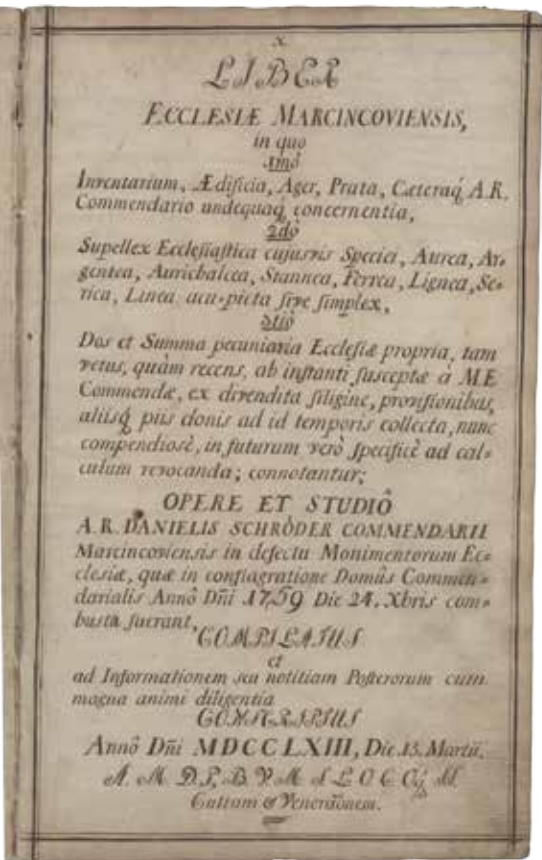 x
LIBER
ECCLESIÆ MARCINCOVIENSIS,
in quo
1mò
Inventarium, Ædificia, Ager, Prata, Cæteraq́ A.R.
Commendario undequaq́ concernentia,
2dò
Supellex Ecclesiastica cujusvis Speciei, Aurea, Ar-
gentea, Aurichalcea, Stannea, Ferrea, Lignea, Se-
rica, Linea acu-picta sive simplex,
3tiò
Dos et Summa pecuniaria Ecclesiæ propria, tam
vetus, quàm recens, ab instanti susceptæ à M.E
Commendæ, ex divendita siligine, provisionibus,
aliisq́ piis donis ad id temporis collecta, nunc
compendiosè, in futurum verò specificè ad cal-
culum revocanda; connotantur;
OPERE ET STUDIÔ
A.R. DANIELIS SCHRÖDER COMMENDARII
Marcincoviensis in defectu Monimentorum Ec-
clesiæ, quæ in conflagratione Domûs Commen-
darialis Annô Dñi 1759 Die 24. Xbris com-
busta fuerant,
COMPILATUS
et
ad Informationem seu notitiam Posterorum cum
magna animi diligentia
CONSCRIPTUS
Annô Dñi MDCCLXIII, Die 13. Martii.
A. M. D. G. B. V. M. L. O. C.
Cultum & Venerãonem.